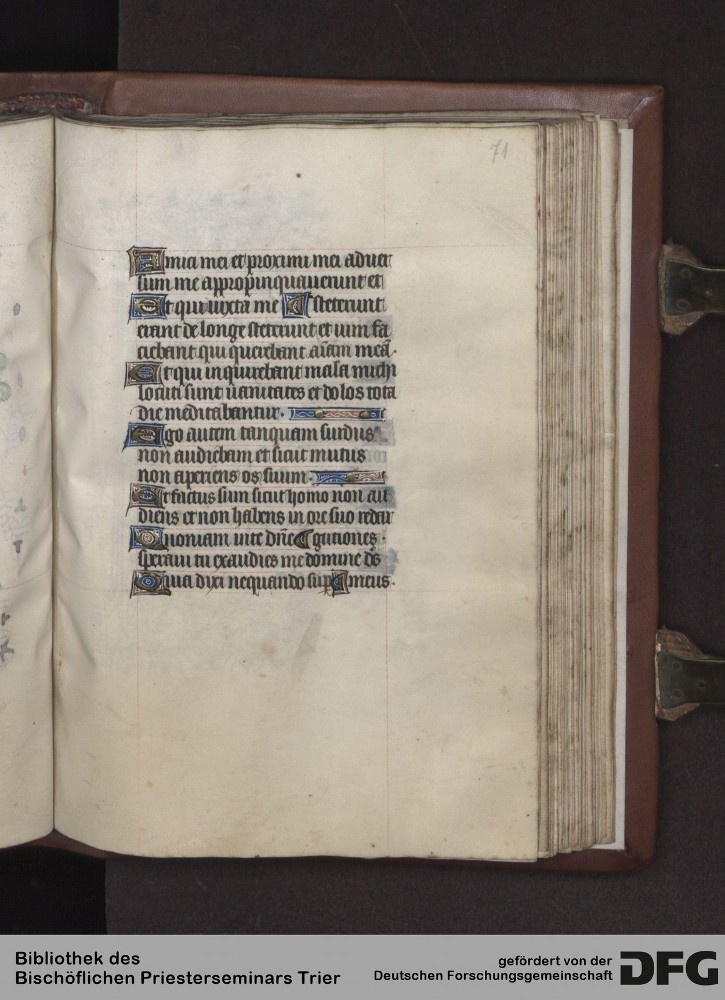 71
Amici mei et proximi mei aduer
sum me appropinquauerunt et
Et qui iuxta me steterunt
erant de longe steterunt et uim fa
ciebant qui querebant aīam meā.
Et qui inquirebant mala michi
locuti sunt uanitates et dolos tota
die meditabantur.
Ego autem tanquam surdus
non audiebam et sicut mutus
non aperiens os suum.
Et factus sum sicut homo non au
diens et non habens in ore suo redar
Quoniam inte dn̄e gutiones.
speraui tu exaudies me domine ds̄
Quia dixi nequando sup meus.
Bibliothek des
Bischöflichen Priesterseminars Trier
gefördert von der
Deutschen Forschungsgemeinschaft
DFG